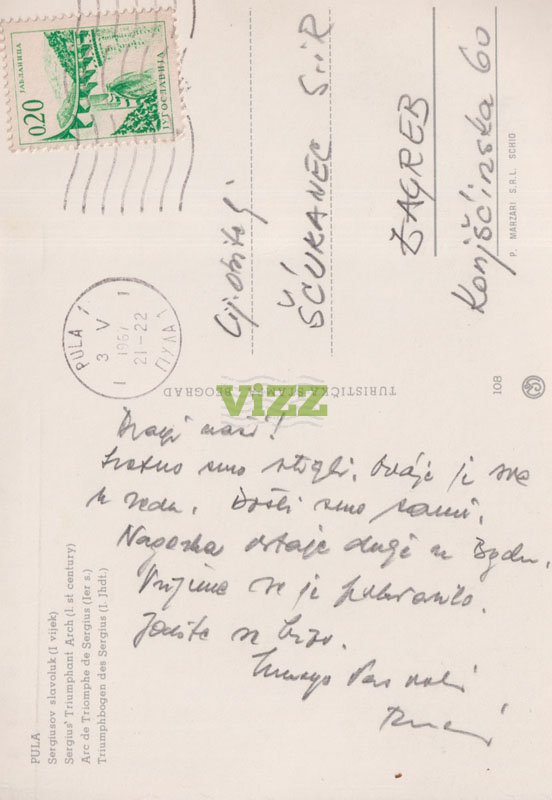 0,20
ЈАБЛАНИЦА
ЈУГОСЛАВИЈА
PULA 1
3 V
1967
21-22
ПУЛА 1
Cij. obitelj
ŠČUKANEC
ZAGREB
Konjšćinska 60
P. MARZARI S.R.L. SCHIO
TURISTIČKA ŠTAMPA BEOGRAD
108
VIZZ
Dragi naši!
Sretno smo stigli. Ovdje je sve
u redu. Došli smo sami.
ostaje dulje u Bgdu.
Vrijeme se je pokvarilo.
Javite se brzo.
Vas voli
PULA
Sergiusov slavoluk (I vijek)
Sergius' Triumphant Arch (I. st century)
Arc de Triomphe de Sergius (Ier s.)
Triumphbogen des Sergius (I. Jhdt.)